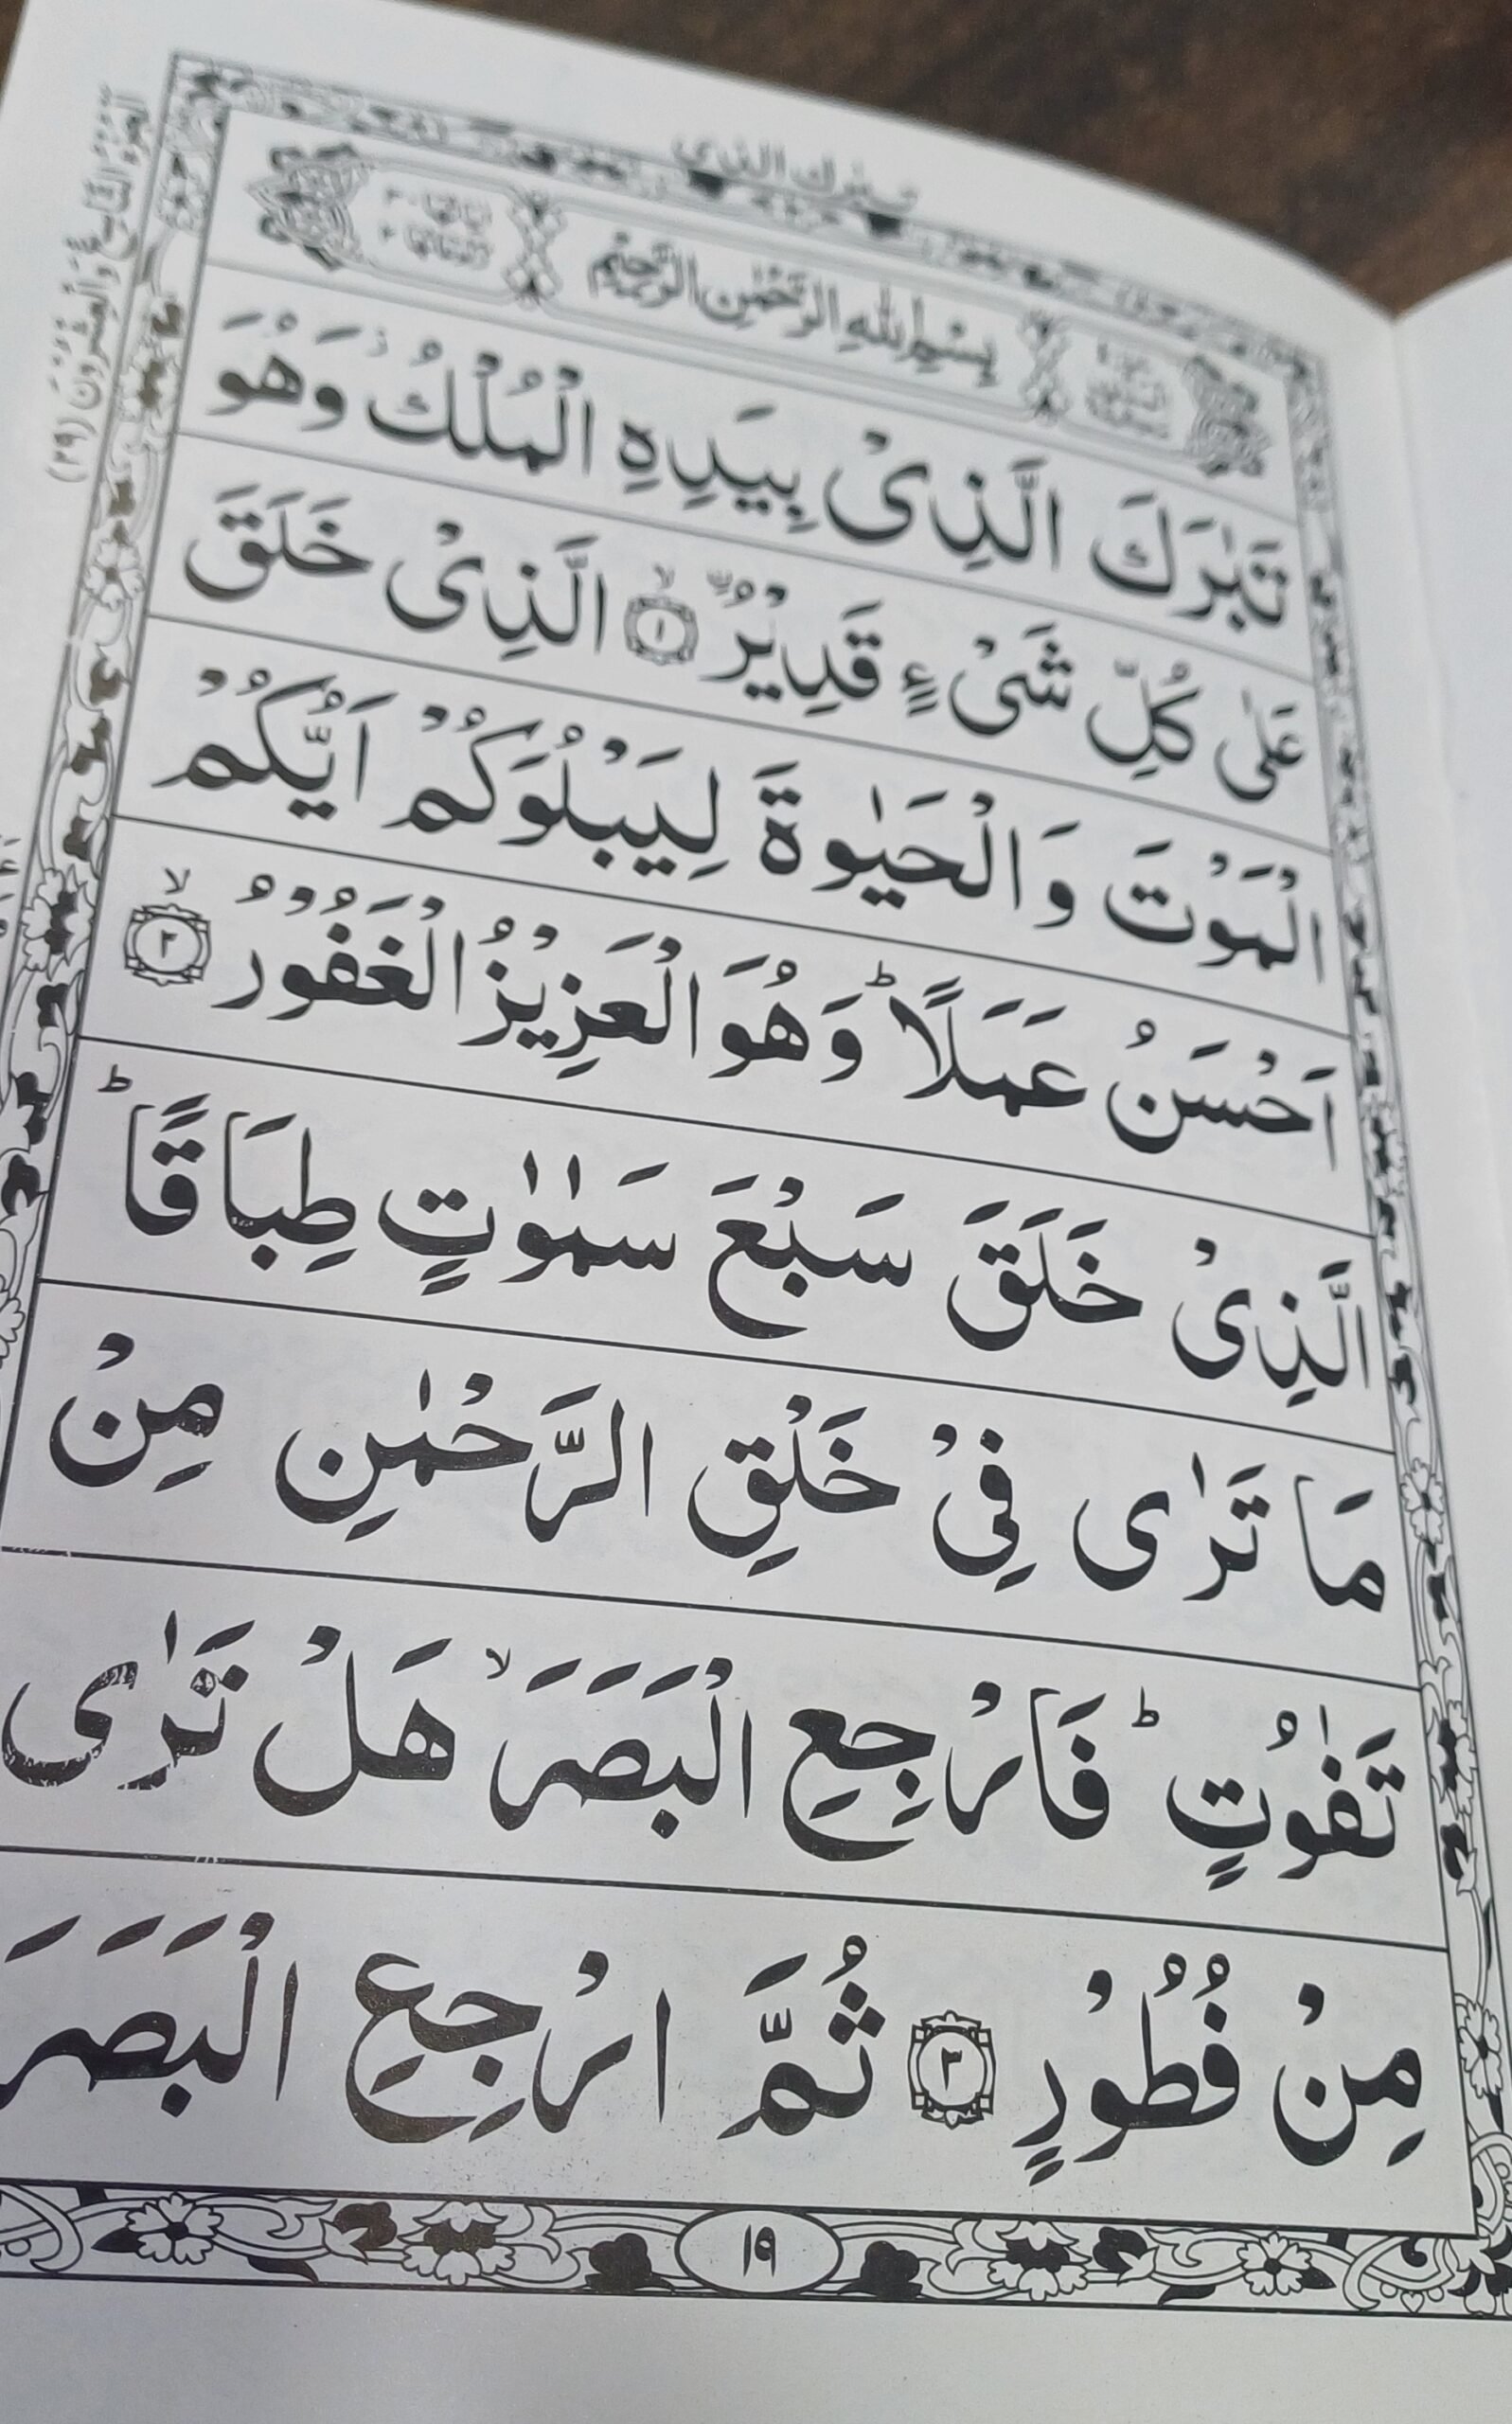 تبٰرك الذی
الجزء التاسع والعشرون (٢٩)
بِسْمِ اللهِ الرَّحْمٰنِ الرَّحِيْمِ
تَبٰرَكَ الَّذِیْ بِيَدِهِ الْمُلْكُ ؗ وَهُوَ
عَلٰی كُلِّ شَیْءٍ قَدِيْرُۨ ۙ﴿١﴾ الَّذِیْ خَلَقَ
الْمَوْتَ وَالْحَيٰوةَ لِيَبْلُوَكُمْ اَيُّكُمْ
اَحْسَنُ عَمَلًا ؕ وَهُوَ الْعَزِيْزُ الْغَفُوْرُ ۙ﴿٢﴾
الَّذِیْ خَلَقَ سَبْعَ سَمٰوٰتٍ طِبَاقًا ؕ
مَا تَرٰی فِیْ خَلْقِ الرَّحْمٰنِ مِنْ
تَفٰوُتٍ ؕ فَارْجِعِ الْبَصَرَ ۙ هَلْ تَرٰی
مِنْ فُطُوْرٍ ﴿٣﴾ ثُمَّ ارْجِعِ الْبَصَرَ
١٩